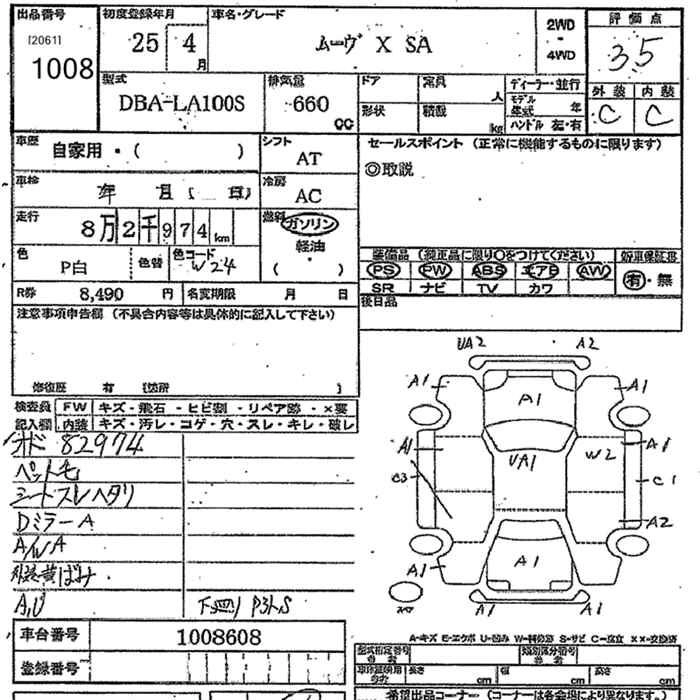 出品番号 初度登録年月 車名・グレード 2WD - 4WD 評価点
[2061] 1008
25 4 月 ムーヴ X SA 3.5
型式 DBA-LA100S 排気量 660 CC
ドア 定員 人 ディーラー・並行 外装 内装
形状 積載 kg モデル年式 年 C C
ハンドル 左・右
車歴 自家用・( ) シフト AT
セールスポイント (正常に機能するものに限ります)
◎取説
車検 年 月( 日) 冷房 AC
走行 8万2千974 km 燃料 ガソリン
軽油
・
( )
色 P白 色替 色コード W24
装備品 (純正品に限り○をつけてください) 新車保証書
PS PW ABS エアB AW 有・無
SR ナビ TV カワ
R券 8,490 円 名変期限 月 日
後日品
注意事項申告欄 (不具合内容等は具体的に記入して下さい)
修復歴 有 [箇所 ]
検査員 FW キズ・飛石・ヒビ割・リペア跡・×要
記入欄 内装 キズ・汚レ・コゲ・穴・スレ・キレ・破レ
82974
ペット毛
シートスレヘタリ
DミラーA
A/WA
外装黄ばみ
A,U 下廻り
UA2 A2
A1 A1 A1
A1 UA1 W2 A1
C3 C1
A2
A1 A1 A1
スペア A1 A1
A-キズ E-エクボ U-凹み W-補修跡 S-サビ C-腐食 XX-交換済
車台番号 1008608
登録番号
型式指定番号 類別区分番号
長さ cm 幅 cm 高さ cm
希望出品コーナー (コーナーは各会場により異なります。)